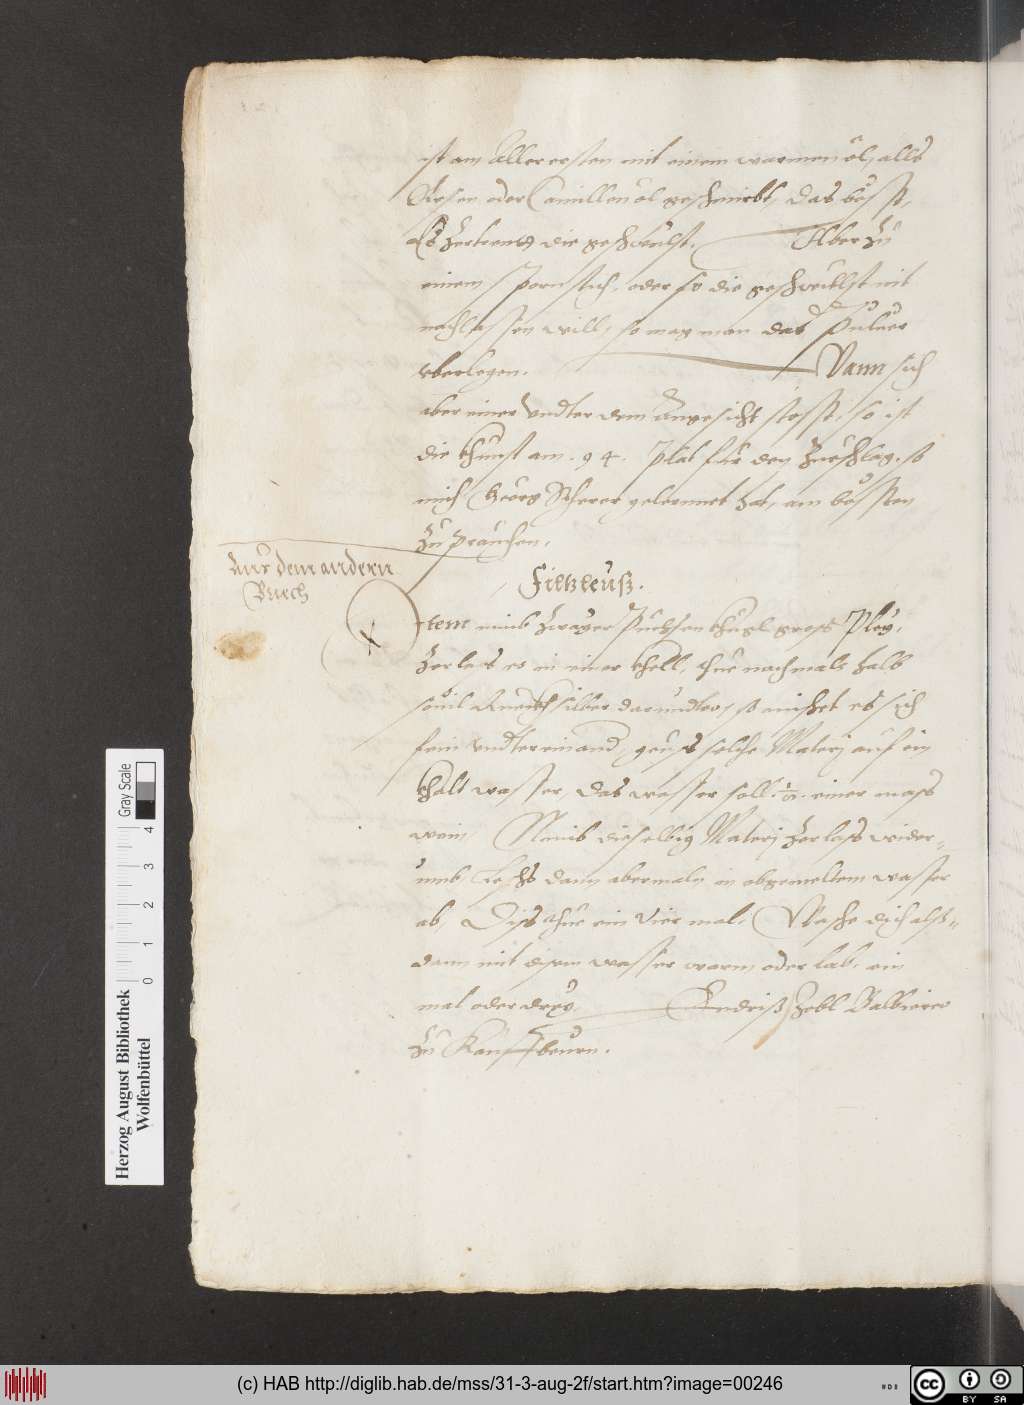 ist am Allerersten mit einem warmen öl, alls
Rosen oder Camillen öl geschmirbt, das böst,
Es zertreuts die geschwulst. Aber zu
einem Spornstich, oder so die geschwullst nit
nachlassen will, so mag man das Puluer
vberlegen. Wann sich
aber einer vndter dem Angesicht stosst, so ist
die khunst am .94. Plat für den Zueschlag, so
mich Georg Scherer gelernnet hat, am bösten
zu prauchen.
Aus dem andern
Buech
Filtzleüsz.
Item nimb zwayer Püchsen khugl gross Pley,
Zerlass es in einer khell, thue nachmals halb
souil Kueckhsilber darundter, so mischet es sich
fein vndtereinand, geuss solche Materj auf ein
khalt wasser, das wasser soll einer mass
wein. Nimb dieselbig Materj zerlass wider-
umb Leschs dann abermaln in obgemeltem wasser
ab, Diss thue ein Vier mal. Wasche dich alss-
dann mit disem wasser warm oder lab, ein
mal oder drey. Endriss Zobl Balbierer
zu Kauffbeurn.
Gray Scale
0 1 2 3 4
Herzog August Bibliothek
Wolfenbüttel
(c) HAB http://diglib.hab.de/mss/31-3-aug-2f/start.htm?image=00246
cc BY SA